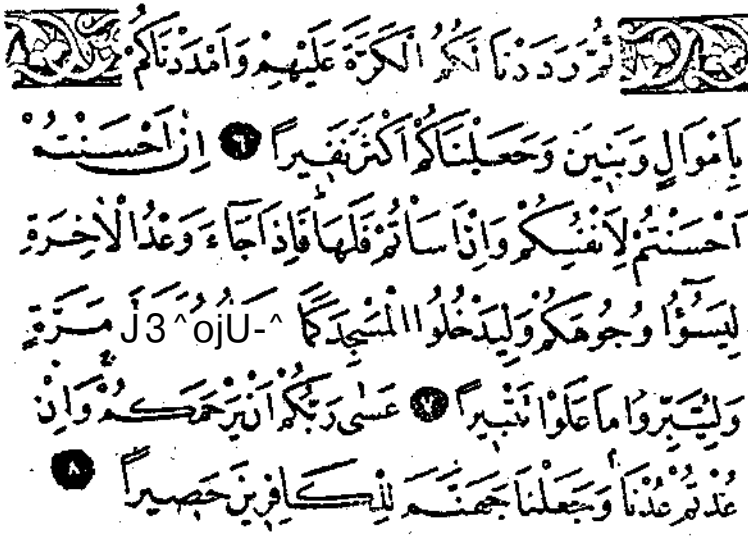 ثُمَّ رَدَدْنَا لَكُمُ الْكَرَّةَ عَلَيْهِمْ وَاَمْدَدْنَاكُمْ
بِاَمْوَالٍ وَبَنِينَ وَجَعَلْنَاكُمْ اَكْثَرَ نَفِيراً ٦ اِنْ اَحْسَنْتُمْ
اَحْسَنْتُمْ لِاَنْفُسِكُمْ وَاِنْ اَسَأْتُمْ فَلَهَا فَاِذَا جَاءَ وَعْدُ الْاٰخِرَةِ
لِيَسُؤُا وُجُوهَكُمْ وَلِيَدْخُلُوا الْمَسْجِدَ كَمَا J3^ojU-^ مَرَّةٍ
وَلِيُتَبِّرُوا مَا عَلَوْا تَتْبِيراً ٧ عَسٰى رَبُّكُمْ اَنْ يَرْحَمَكُمْ وَاِنْ
عُدْتُمْ عُدْنَا وَجَعَلْنَا جَهَنَّمَ لِلْكَافِرِينَ حَصِيراً ٨